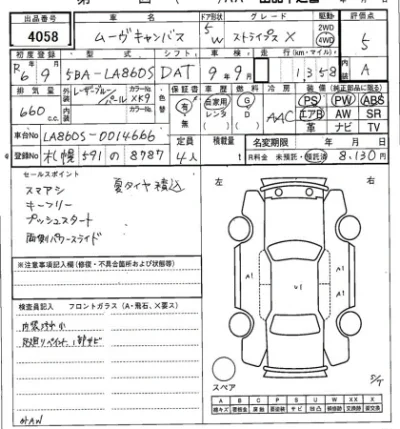 出品番号 車名 ドア形状 グレード 駆動 評価点
4058 ムーヴキャンバス 5 W ストライプス X 2WD 4WD 5
初度登録 型式 シフト 車検 走行(km・マイル) 内装
R6年 9月 5BA-LA860S DAT 9年 9月 1,358 A
排気量 外装 レーザーブルー/パール XK9 色替 保証書 車歴 燃料 冷房 装備(純正部品に限る)
660cc 内装 有・無 自家用 レンタ G D AAC PS PW ABS
エアB AW SR
革 ナビ TV
車台No LA860S-0014666 定員 積載量 名変期限 年 月 日
登録No 札幌 591 の 8787 4人 t R料金 未預託・預託済 8,130円
セールスポイント
スマアシ 夏タイヤ積込
キーフリー
プッシュスタート
両側パワースライド
左 右
※注意事項記入欄(修復・不具合箇所および状態等)
検査員記入 フロントガラス(A・飛石、X要ス)
内装汚れ小
外AW
A1 A1 U1
スペア
A B C P S U W X XX